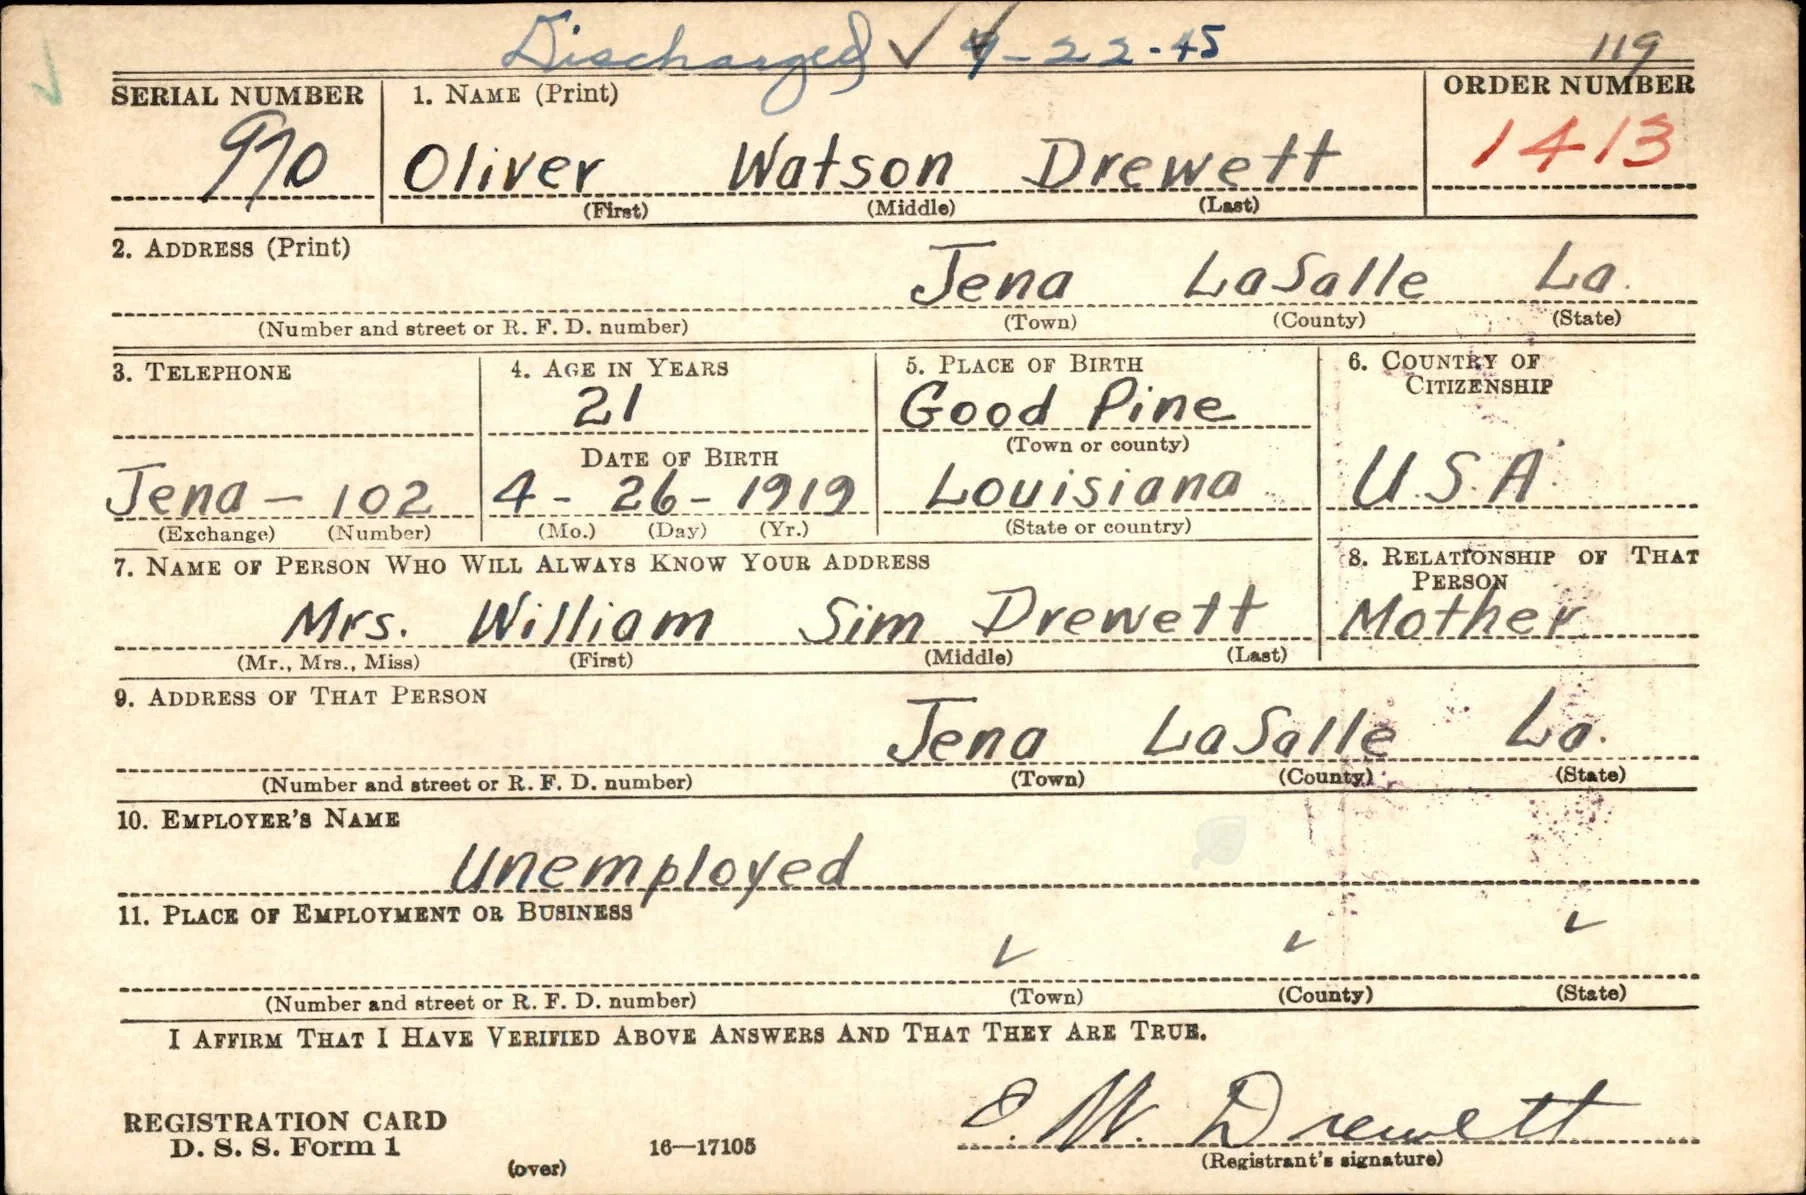 Discharged ✓ 9-22-45 119
SERIAL NUMBER 1. NAME (Print) ORDER NUMBER
970 Oliver Watson Drewett 1413
(First) (Middle) (Last)
2. ADDRESS (Print)
Jena LaSalle La.
(Number and street or R. F. D. number) (Town) (County) (State)
3. TELEPHONE 4. AGE IN YEARS 5. PLACE OF BIRTH 6. COUNTRY OF CITIZENSHIP
21 Good Pine
(Town or county)
DATE OF BIRTH
Jena - 102 4 - 26 - 1919 Louisiana U.S.A.
(Exchange) (Number) (Mo.) (Day) (Yr.) (State or country)
7. NAME OF PERSON WHO WILL ALWAYS KNOW YOUR ADDRESS 8. RELATIONSHIP OF THAT PERSON
Mrs. William Sim Drewett Mother
(Mr., Mrs., Miss) (First) (Middle) (Last)
9. ADDRESS OF THAT PERSON
Jena LaSalle La.
(Number and street or R. F. D. number) (Town) (County) (State)
10. EMPLOYER'S NAME
Unemployed
11. PLACE OF EMPLOYMENT OR BUSINESS
✓ ✓ ✓
(Number and street or R. F. D. number) (Town) (County) (State)
I AFFIRM THAT I HAVE VERIFIED ABOVE ANSWERS AND THAT THEY ARE TRUE.
REGISTRATION CARD
D. S. S. Form 1 16—17105 W. Drewett
(over) (Registrant's signature)